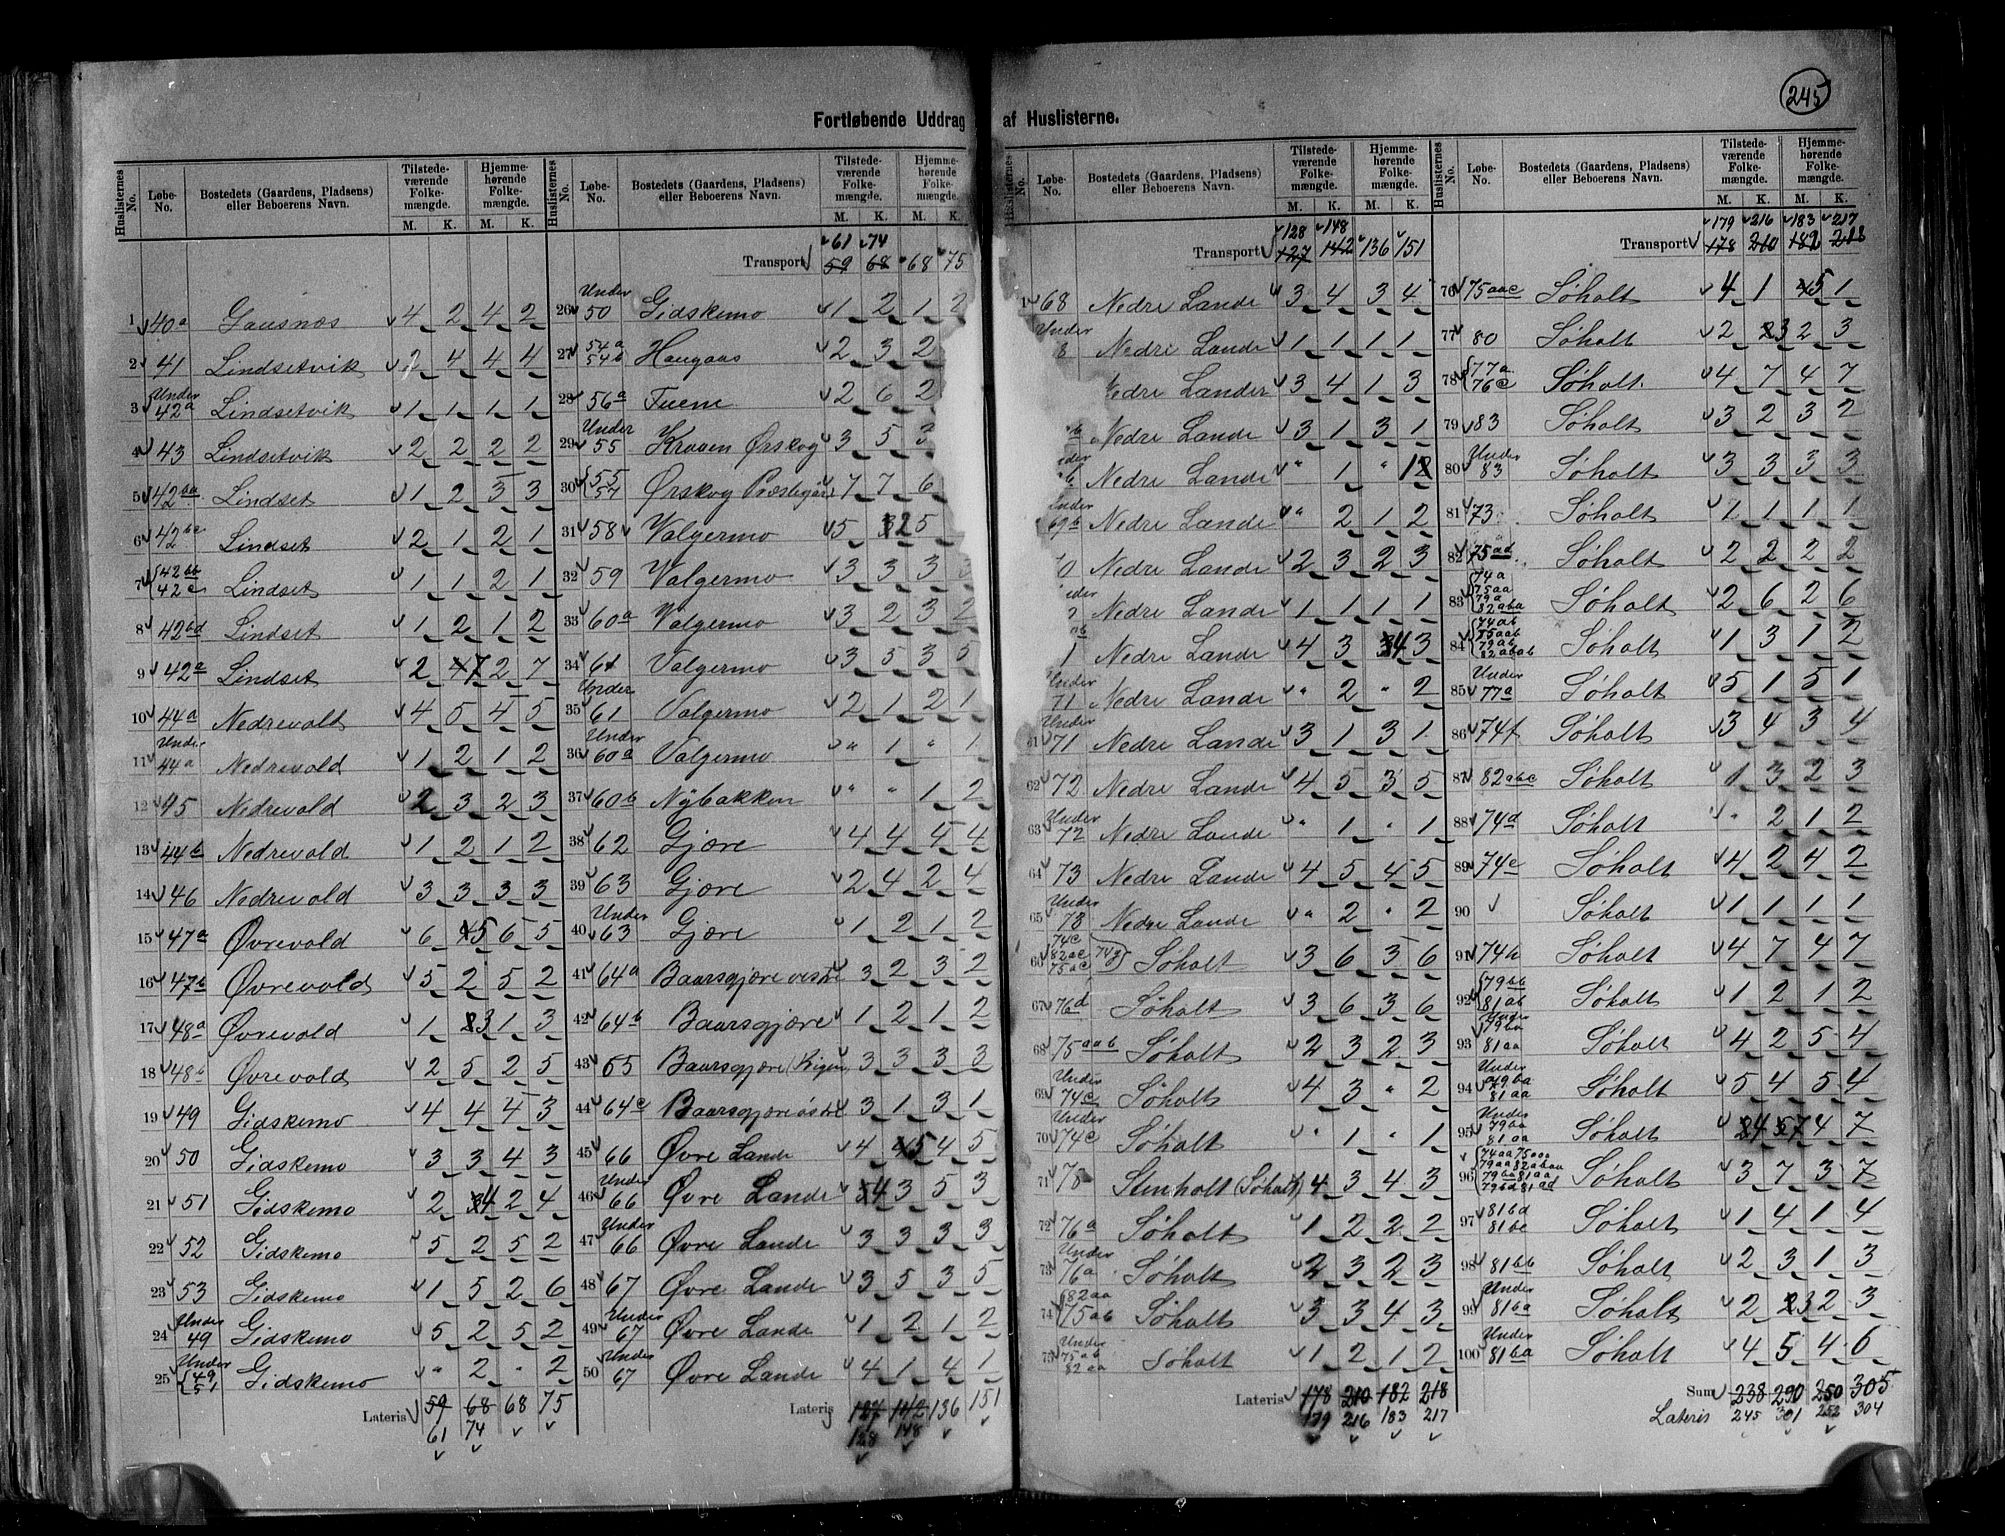 245
Fortløbende Uddrag af Huslisterne.
Huslisternes No. Løbe-No. Bostedets (Gaardens, Pladsens) eller Beboerens Navn. Tilstedeværende Folkemængde. M. K. Hjemmehørende Folkemængde. M. K.
1 40a Gausnæs 4 2 4 2
2 41 Lindsetvik 2 4 4 4
3 Under 42a Lindsetvik 1 1 1 1
4 43 Lindsetvik 2 2 2 2
5 42ba Lindset 1 2 3 3
6 42bc Lindset 2 1 2 1
7 42bb 42c Lindset 1 1 2 1
8 42bd Lindset 1 2 1 2
9 42a Lindset 2 7 2 7
10 44a Nedrevolt 4 5 4 5
11 Under 44a Nedrevold 1 2 1 2
12 45 Nedrevold 2 3 2 3
13 44b Nedrevold 1 2 1 2
14 46 Nedrevold 3 3 3 3
15 47a Øvrevold 6 5 6 5
16 47b Øvrevold 5 2 5 2
17 48a Øvrevold 1 3 1 3
18 48b Øvrevold 2 5 2 5
19 49 Gidskemo 4 4 4 3
20 50 Gidskemo 3 3 4 3
21 51 Gidskemo 2 4 2 4
22 52 Gidskemo 5 2 5 2
23 53 Gidskemo 1 5 2 6
24 Under 49 Gidskemo 5 2 5 2
25 Under 49 51 Gidskemo " 2 " 2
Lateris 59 68 68 75
61 74
Huslisternes No. Løbe-No. Bostedets (Gaardens, Pladsens) eller Beboerens Navn. Tilstedeværende Folkemængde. M. K. Hjemmehørende Folkemængde. M. K.
61 74
Transport 59 68 68 75
26 Under 50 Gidskemo 1 2 1 2
27 54a 54b Haugaas 2 3 2
28 56a Tuene 2 6 2
29 Under 55 Kroven Ørskog 3 5 3
30 55 57 Ørskog 7 7 6
31 58 Valgermo 5 2 5
32 59 Valgermo 3 3 3 3
33 60a Valgermo 3 2 3 2
34 61 Valgermo 3 5 3 5
35 Under 61 Valgermo 2 1 2 1
36 Under 60a Valgermo " 1 " 1
37 60b Nÿbakken " " 1 2
38 62 Gjære 4 4 4 4
39 63 Gjære 2 4 2 4
40 Under 63 Gjære 1 2 1 2
41 64a Baarsgjære vestre 3 2 3 2
42 64b Baarsgjære 1 2 1 2
43 65 Baarsgjære 3 3 3 3
44 64c Baarsgjære østre 3 1 3 1
45 66 Øvre Lande 4 5 4 5
46 Under 66 Øvre Lande 4 3 5 3
47 Under 66 Øvre Lande 3 3 3 3
48 67 Øvre Lande 3 5 3 5
49 Under 67 Øvre Lande 1 2 1 2
50 Under 67 Øvre Lande 4 1 4 1
Lateris 127 142 136 151
128 148
Huslisternes No. Løbe-No. Bostedets (Gaardens, Pladsens) eller Beboerens Navn. Tilstedeværende Folkemængde. M. K. Hjemmehørende Folkemængde. M. K.
128 148
Transport 127 142 136 151
1 68 Nedre Lande 3 4 3 4
Under 8 Nedre Lande 1 1 1 1
Nedre Lander 3 4 1 3
Nedre Lande 3 1 3 1
Nedre Lande " 1 "
69b Nedre Lande " 2 1 2
0 Nedre Lande 2 3 2 3
Nedre Lande 1 1 1 1
1 Nedre Lande 4 3 4 3
Under 71 Nedre Lande " 2 " 2
61 Under 71 Nedre Lande 3 1 3 1
62 72 Nedre Lande 4 5 3 5
63 Under 72 Nedre Lande " 1 " 1
64 73 Nedre Lande 4 5 4 5
65 Under 73 Nedre Lande " 2 " 2
66 74c 82ac 75ac 74g Søholt 3 6 3 6
67 76d Søholt 3 6 3 6
68 75aab Søholt 2 3 2 3
69 Under 74c Søholt 4 3 " 2
70 Under 74c Søholt " 1 " 1
71 78 Stenholt (Søholt) 4 3 4 3
72 76a Søholt 1 2 2 2
73 Under 76a Søholt 2 3 2 3
74 82aa 75ab Søholt 3 3 4 3
75 Under 75ab 82aa Søholt 1 2 1 2
Lateris 178 210 182 218
179 216 183 217
Huslisternes No. Løbe-No. Bostedets (Gaardens, Pladsens) eller Beboerens Navn. Tilstedeværende Folkemængde. M. K. Hjemmehørende Folkemængde. M. K.
179 216 183 217
Transport 178 210 182 218
76 75aac Søholt 4 1 5 1
77 80 Søholt 2 3 2 3
78 77a 76c Søholt. 4 7 4 7
79 83 Søholt 3 2 3 2
80 Under 83 Søholt 3 3 3 3
81 73 Søholt 1 1 1 1
82 75ad Søholt 2 2 2 2
83 74a 75aa 79a 82aba Søholt 2 6 2 6
84 74ab 75aab 79ab 82abab Søholt 1 3 1 2
85 Under 77a Søholt 5 1 5 1
86 74f Søholt 3 4 3 4
87 82abc Søholt 1 3 2 3
88 74d Søholt " 2 1 2
89 74e Søholt 4 2 4 2
90 Søholt 1 1 1 1
91 74h Søholt 4 7 4 7
92 79bb 81ab Søholt 1 2 1 2
93 Under 79ba 81aa Søholt 4 2 5 4
94 Under 79ba 81aa Søholt 5 4 5 4
95 Under 79ba 81aa Søholt 4 7 4 7
96 74aa 75aaa 79aa 82abaa 79ba 81aa 79bd 81ad Søholt 3 7 3 7
97 81bd 81bc Søholt 1 4 1 4
98 81bb Søholt 2 3 1 3
99 Under 81ba Søholt 2 3 2 3
100 Under 81ba Søholt 4 5 4 6
Sum 238 290 250 305
Lateris 245 301 252 304